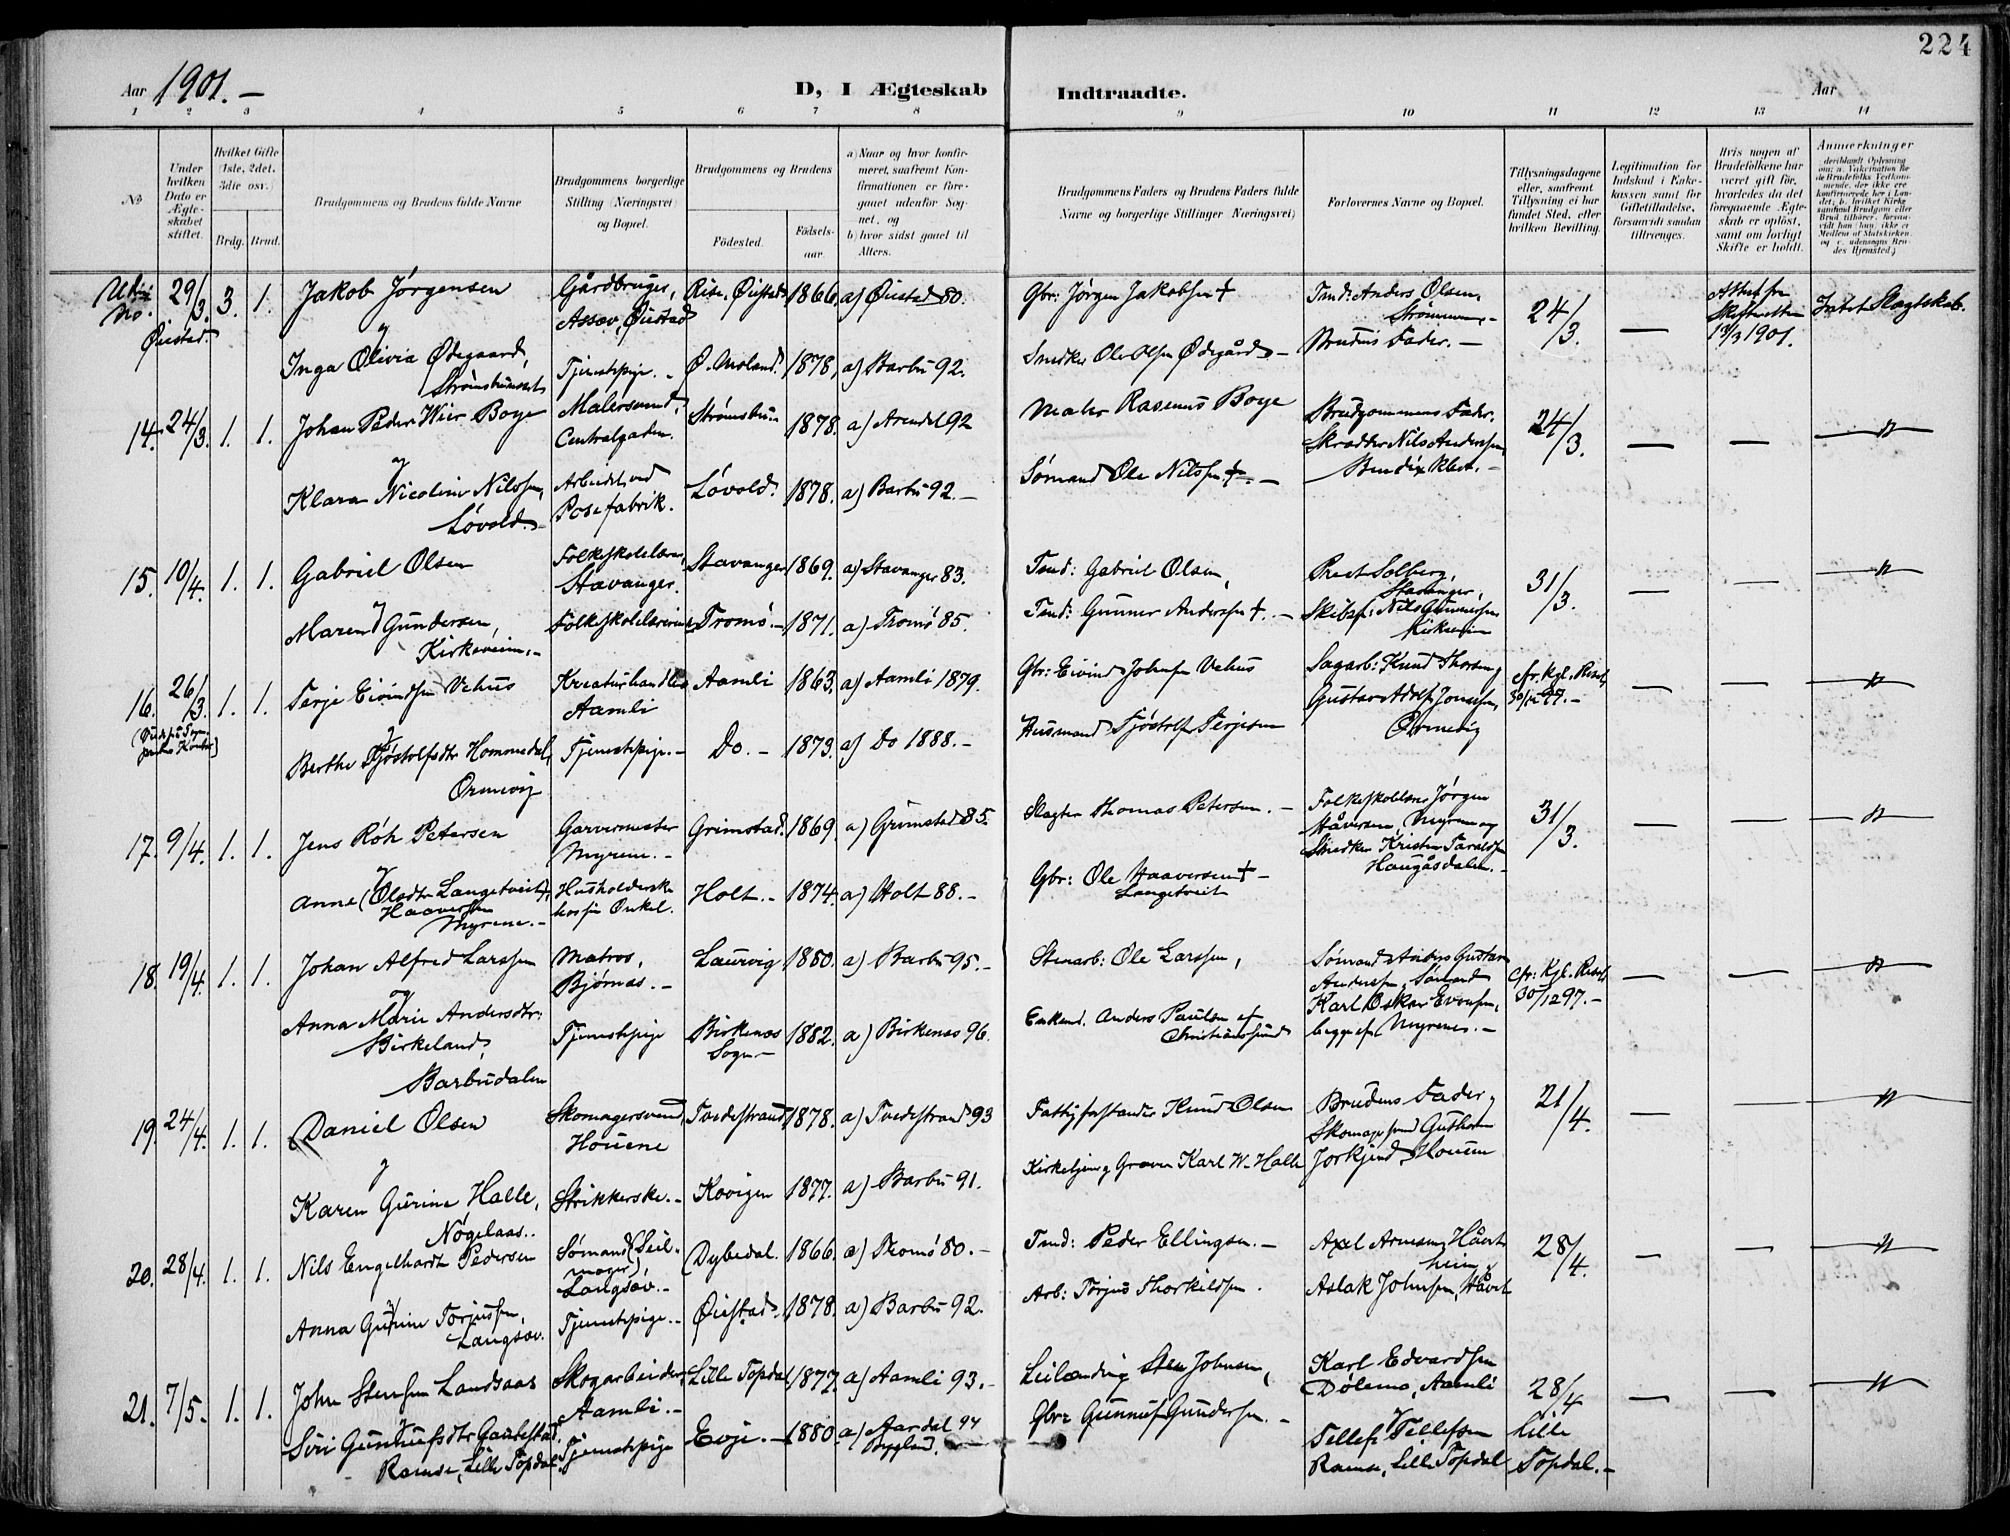 224
Aar 1901. –
D, I Ægteskab Indtraadte.
Aar
1 2 3 4 5 6 7 8 9 10 11 12 13 14
No
Under hvilken Dato er Ægteskabet stiftet.
Hvilket Gifte (1ste, 2det, 3die osv.)
Brdg. Brud.
Brudgommens og Brudens fulde Navne
Brudgommens borgerlige Stilling (Næringsvei) og Bopæl.
Brudgommens og Brudens
Fødested.
Fødselsaar.
a) Naar og hvor konfirmeret, saafremt Konfirmationen er foregaaet udenfor Sognet, og
b) hvor sidst gaaet til Alters.
Brudgommens Faders og Brudens Faders fulde Navne og borgerlige Stillinger (Næringsvei)
Forlovernes Navne og Bopæl.
Tillysningsdagene eller, saafremt Tillysning ei har fundet Sted, efter hvilken Bevilling.
Legitimation for Indskud i Enkekassen samt for Giftetilladelse, forsaavidt saadan tiltrænges.
Hvis nogen af Brudefolkene har været gift før, hvorledes da det foregaaende Ægteskab er opløst, samt om lovligt Skifte er holdt.
Anmærkninger
Øiestad. 29/3. 3. 1. Jakob Jørgensen Gårdbruger, Assev, Øiestad Rise, Øiestad 1866 a) Øiestad 80. Gbr: Jørgen Jakobsen † Tmd: Anders Olsen, Strømmen,- 24/3. — 13/3 1901. Intet Slagtskab.
og
Inga Olivia Ødegaard, Strømsbuneset Tjenestpige. - Ø. Moland. 1878, a) Barbu 92. Snedker Ole Olsen Ødegård - Brudens Fader. -
14. 24/3. 1. 1. Johan Peder Wiir Boye Malersvend, Centralgaden. Strømsbu 1878. a) Arendal 92 Maler Rasmus Boye Brudgommens Fader. 24/3. — —
og
Skrædder Nils Anderssen, Bendixklev. -
Klara Nicoline Nilssen, Løvold. Arbeidet ved Posefabrik. Løvold. 1878. a) Barbu 92. - Sømand Ole Nilssen †. -
15. 10/4. 1. 1. Gabriel Olsen Folkeskolelærer, Stavanger. Stavanger 1869. a) Stavanger 83. Tmd: Gabriel Olsen, Præst Solberg, Stavanger, 31/3. — —
og
Maren Gundersen, Kirkeveien.- Folkeskolelærerinde Tromø. - 1871. a) Tromø 85. Tmd: Gunner Anderssen †. - Skibsf: Nils Gunnersen Kirkeveien
16. 26/3. 1. 1. Terje Eivindsen Vehus Kreaturhandler Aamli Aamli 1863. a) Aamli 1879. Gbr: Eivind Johnsen Vehus Sagarb: Knud Thorsen og cfr. Kgl. Resol. 30/12 97. - — —
og
Gustav Adolf Jonassen, Ormevig
Berthe Tjøstolfsdtr Hommedal, Ormevig Tjenestpige. - Do. - 1873. a) Do 1888. - Husmand Tjøstolf Terjesen
17. 9/4. 1. 1. Jens Röh Petersen Garvermester Myrene. - Grimstad. 1869. a) Grimstad 85. Slagter Thomas Petersen. - Folkeskolelærer Jørgen Håversen, Myrene og 31/3. — —
og
Snedker Kristen Taraldsen Haugåsdalen. -
Anne (Olsdtr Langetveit), Haaversen Myrene. - Husholderske hos sin Onkel. Holt. - 1874. a) Holt 88. - Gbr: Ole Haaversen † - Langetveit
18. 19/4. 1. 1. Johan Alfred Larssen Matros, Bjørnæs. - Laurvig 1880. a) Barbu 95. - Stenarb: Ole Larssen, Sømand Anders Gustav Anderssen, Sømand cfr: Kgl. Resol. 30/12 97. - — —
og
Karl Oskar Evensen, begge af Myrenes. -
Anna Marie Andersdtr: Birkeland, Barbudalen Tjenestpige Birkenæs Sogn - 1882. a) Birkenæs 96. Enkemd. Anders Paulsen af Christianssund
19. 24/4. 1. 1. Daniel Olsen Skomagersvend, Houene Tvedestrand 1878. a) Tvedestrand 93 Fattigforstander Knud Olsen Brudens Fader og 21/4. — —
og
Skomagersvend Guthorm Jorkjend, Houene
Karen Gurine Halle, Nøgelaas.. Strikkerske. - Kovigen 1877. a) Barbu 91. Kirketjener og Graver Karl W. Halle
20. 28/4. 1. 1. Nils Engelhardt Pedersen Sømand (Seilmager) Langsæv. - Dybedal. 1866. a) Tromø 80. - Tmd: Peder Ellingsen. - Axel Arnesen, Håvet heim og 28/4. — —
og
Aslak Johnsen, Håvet
Anna Gurine Torjussen, Langsæv. Tjenestpige. - Øiestad. 1878. a) Barbu 92. Arb: Torjus Thorkildsen.
21. 7/5. 1. 1. John Stensen Landsaas Skogarbeider, Aamli. - Lille Topdal 1877. a) Aamli 93. - Leilænding Sten Johnsen, Karl Edvardsen Dølemo, Aamli 28/4 — —
og
Siri Gunnufsdtr Gautestad, Ramse, Lille Topdal. Tjenestpige Evje. - 1880. a) Aardal Bygland. 94 Gbr: Gunnuf Gundersen. - Tellef Tellefsen Ramse, Lille Topdal Lille Topdal. -